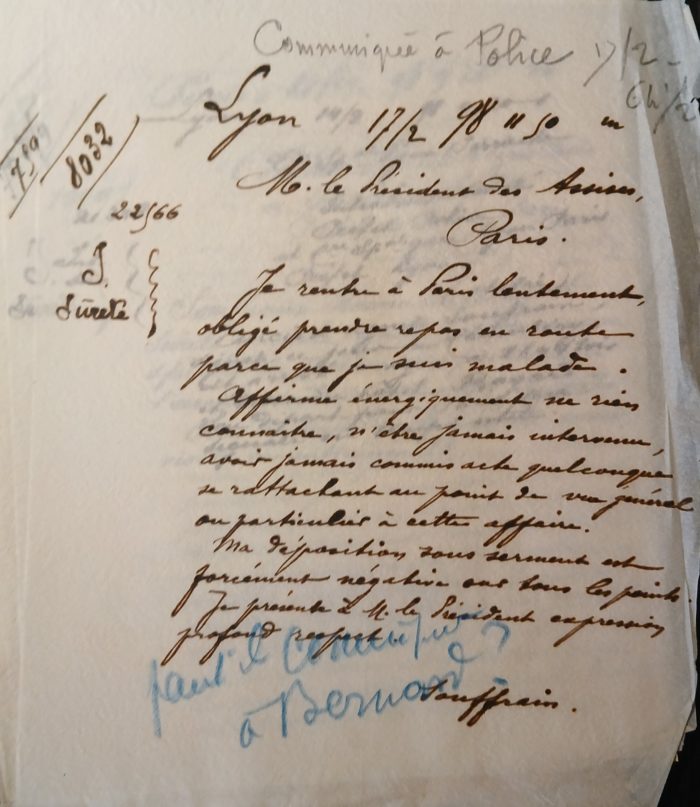 Communiquée à Police 17/2 -
6h
Lyon 17/2 98 11 50 m
8032
22566
J.
Sûreté
M. le Président des Assises,
Paris.
Je rentre à Paris lentement,
obligé prendre repos en route
parce que je suis malade.
Affirme énergiquement ne rien
connaitre, n'être jamais intervenu,
avoir jamais commis acte quelconque
se rattachant au point de vue général
ou particulier à cette affaire.
Ma déposition sous serment est
forcément négative sur tous les points.
Je présente à M. le Président expression
profond respect.
Souffrain.
faut-il communiquer
à Bernard ?